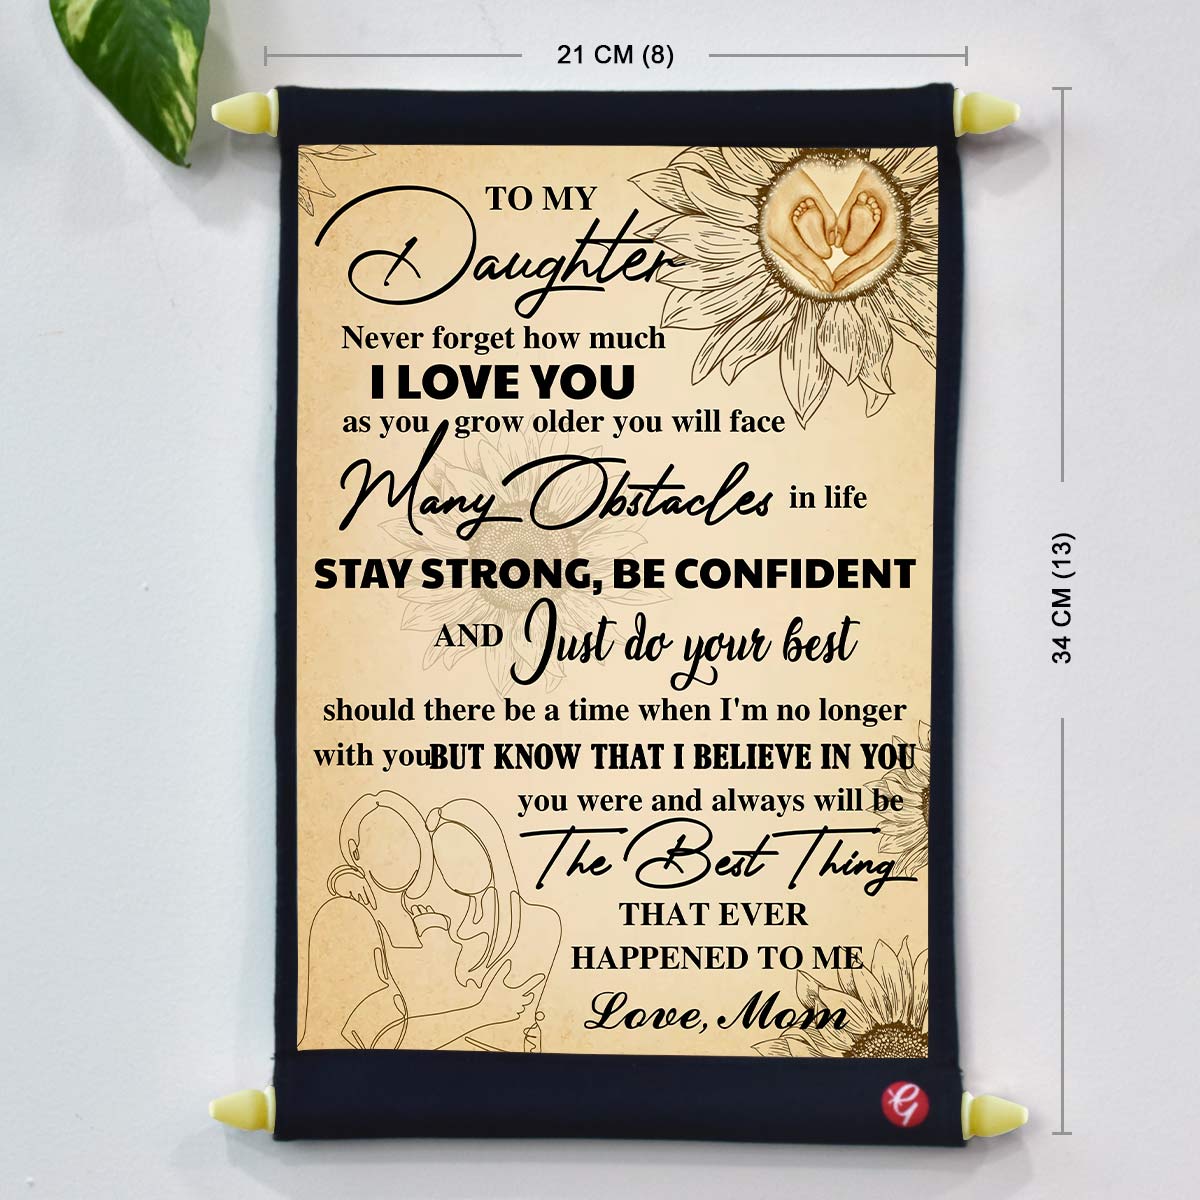 21 CM (8)
TO MY
Daughter
Never forget how much
I LOVE YOU
as you grow older you will face
Many Obstacles in life
STAY STRONG, BE CONFIDENT
AND Just do your best
should there be a time when I'm no longer
with you BUT KNOW THAT I BELIEVE IN YOU
you were and always will be
The Best Thing
THAT EVER
HAPPENED TO ME
Love, Mom
34 CM (13)